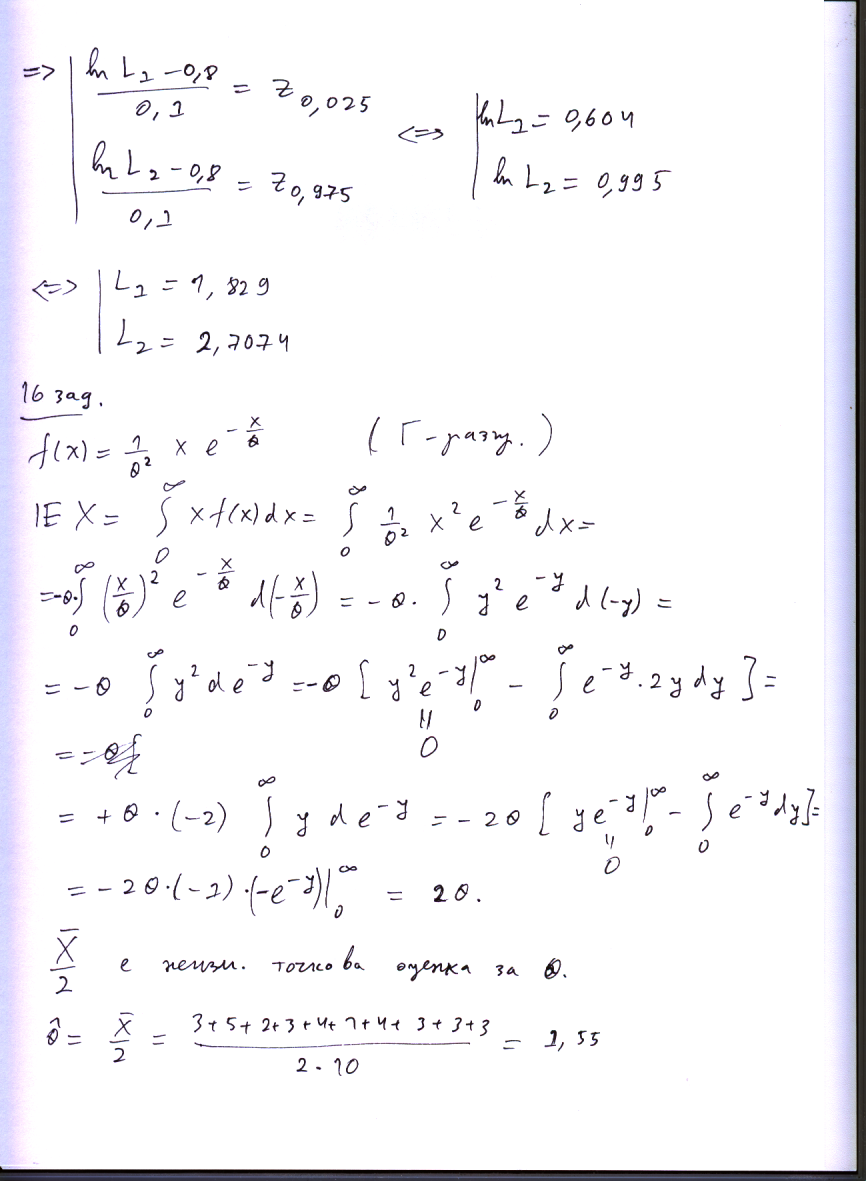 => | (ln L₁ - 0,8)/0,1 = z₀,₀₂₅
| (ln L₂ - 0,8)/0,1 = z₀,₉₇₅ <=> | ln L₁ = 0,604
| ln L₂ = 0,995
<=> | L₁ = 1,829
| L₂ = 2,7074
16 зад.
f(x) = 1/θ² x e^(-x/θ) (Г-разпр.)
IE X = ∫₀^∞ x f(x) dx = ∫₀^∞ 1/θ² x² e^(-x/θ) dx =
= -θ. ∫₀^∞ (x/θ)² e^(-x/θ) d(-x/θ) = -θ. ∫₀^∞ y² e^(-y) d(-y) =
= -θ ∫₀^∞ y² de^(-y) = -θ [ y² e^(-y) |₀^∞ - ∫₀^∞ e^(-y) . 2y dy ] =
|| 0
= + θ · (-2) ∫₀^∞ y de^(-y) = -2θ [ ye^(-y) |₀^∞ - ∫₀^∞ e^(-y) dy ] =
|| 0
= -2θ.(-1).(-e^(-y)) |₀^∞ = 2θ.
X̄/2 е неизм. точкова оценка за θ.
θ̂ = X̄/2 = (3+5+2+3+4+1+4+3+3+3)/(2.10) = 1,55